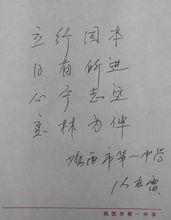 立行固本
日有所进
心宁志坚
玉林为伴
鸡西市第一中学
鸡西市第一中学